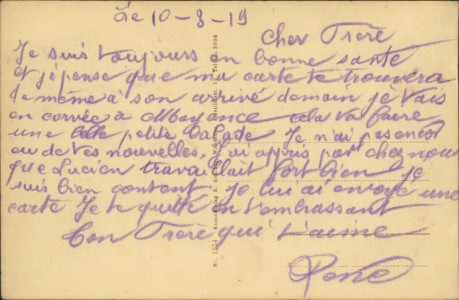 Le 10-3-19
Cher Frère
Je suis toujours en bonne sante
et je pense que ma carte te trouvera
de même à son arrivé demain je vais
en corvée a Mayence cela va faire
une petite balade Je n'ai pas encor
eu de tes nouvelles, j'ai appris par chez nou
que Lucien travaillait fort bien je
suis bien content je lui ai envoyé une
carte Je te quitte en t'embrassant
Ton Frère qui t'aime
René